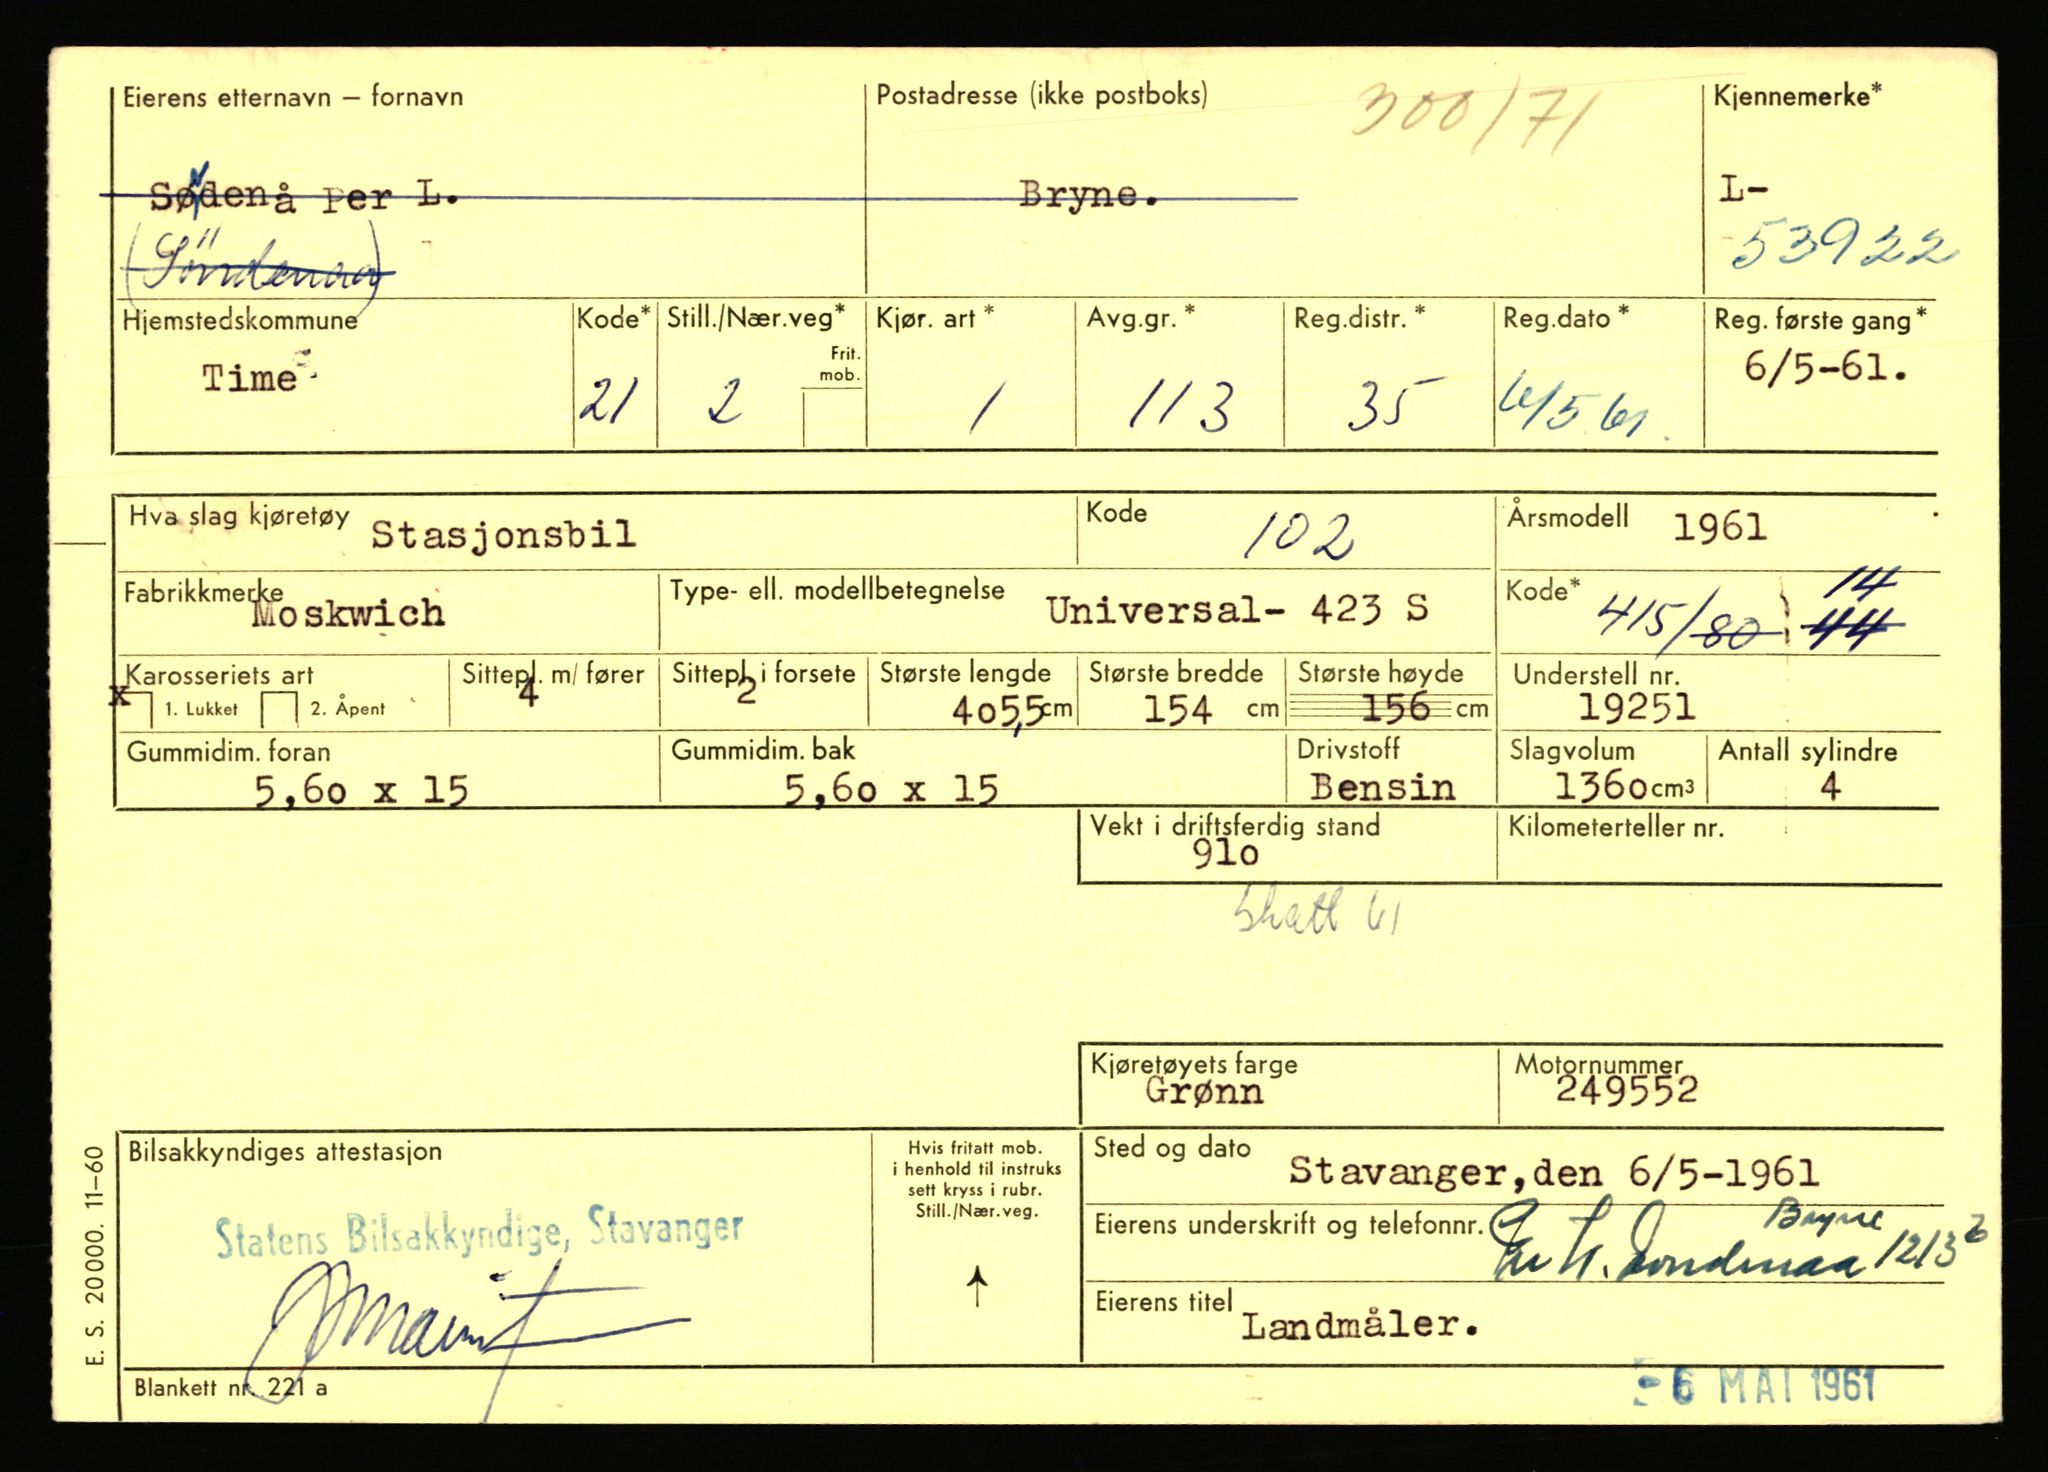 Eierens etternavn – fornavn
Postadresse (ikke postboks)
300/71
Kjennemerke*
Sødenå Per L.
Bryne.
L-
(Söndenaa)
53922
Hjemstedskommune
Kode*
Still./Nær.veg*
Kjør. art*
Avg.gr.*
Reg.distr.*
Reg.dato*
Reg. første gang*
Frit. mob.
Time
21
2
1
113
35
6/5 61.
6/5-61.
Hva slag kjøretøy Stasjonsbil
Kode 102
Årsmodell 1961
Fabrikkmerke Moskwich
Type- ell. modellbetegnelse Universal- 423 S
Kode* 415/80 44 14
Karosseriets art
x 1. Lukket 2. Åpent
Sittepl. m/ fører 4
Sittepl. i forsete 2
Største lengde 4055,5 cm
Største bredde 154 cm
Største høyde 156 cm
Understell nr. 19251
Gummidim. foran 5,60 x 15
Gummidim. bak 5,60 x 15
Drivstoff Bensin
Slagvolum 1360 cm3
Antall sylindre 4
Vekt i driftsferdig stand 910
Kilometerteller nr.
Skatt 61
Kjøretøyets farge Grønn
Motornummer 249552
Bilsakkyndiges attestasjon
Statens Bilsakkyndige, Stavanger
Hvis fritatt mob.
i henhold til instruks
sett kryss i rubr.
Still./Nær.veg.
Sted og dato Stavanger,den 6/5-1961
Eierens underskrift og telefonnr. Per L. Söndenaa Bryne 1213
Eierens titel Landmåler.
E. S. 20000. 11-60
Blankett nr. 221 a
-6 MAI 1961